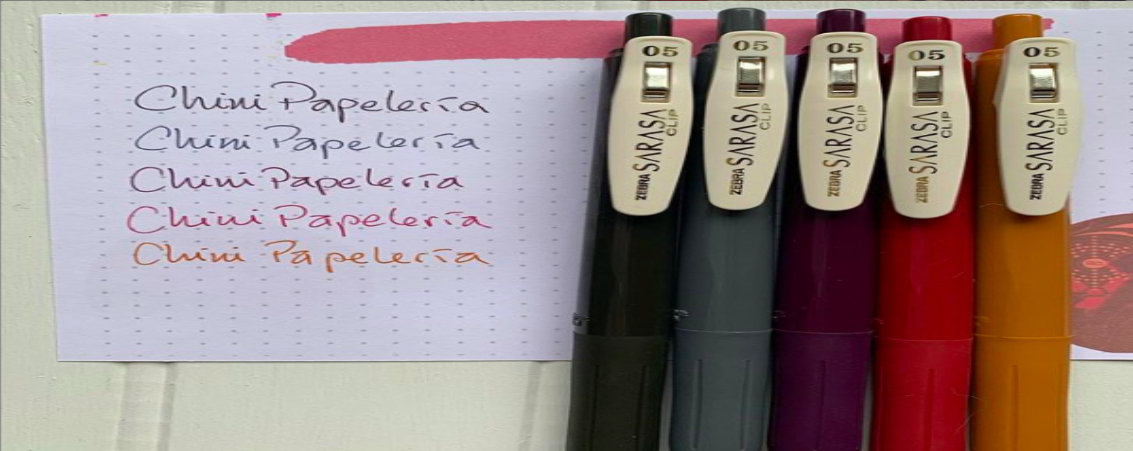 Chini Papelería
Chini Papelería
Chini Papelería
Chini Papelería
Chini Papelería
05
ZEBRA SARASA CLIP
05
ZEBRA SARASA CLIP
05
ZEBRA SARASA CLIP
05
ZEBRA SARASA CLIP
05
ZEBRA SARASA CLIP